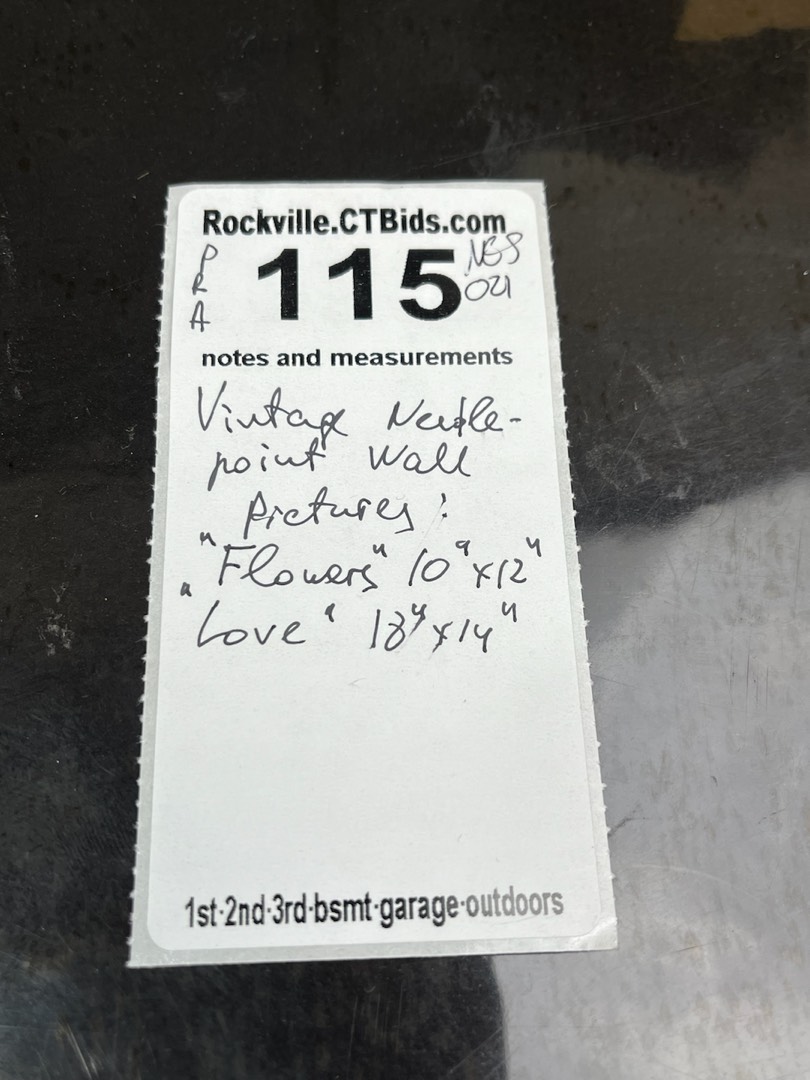 Rockville.CTBids.com
PRA
115
NGS
021
notes and measurements
Vintage Needle-
point Wall
Pictures:
"Flowers" 10"x12"
"Love" 18"x14"
1st·2nd·3rd·bsmt·garage·outdoors